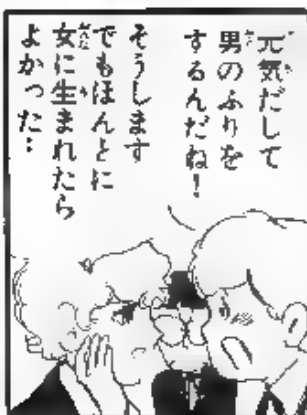 元気だして
男のふりを
するんだね!
そうします
でもほんとに
女に生まれたら
よかった…